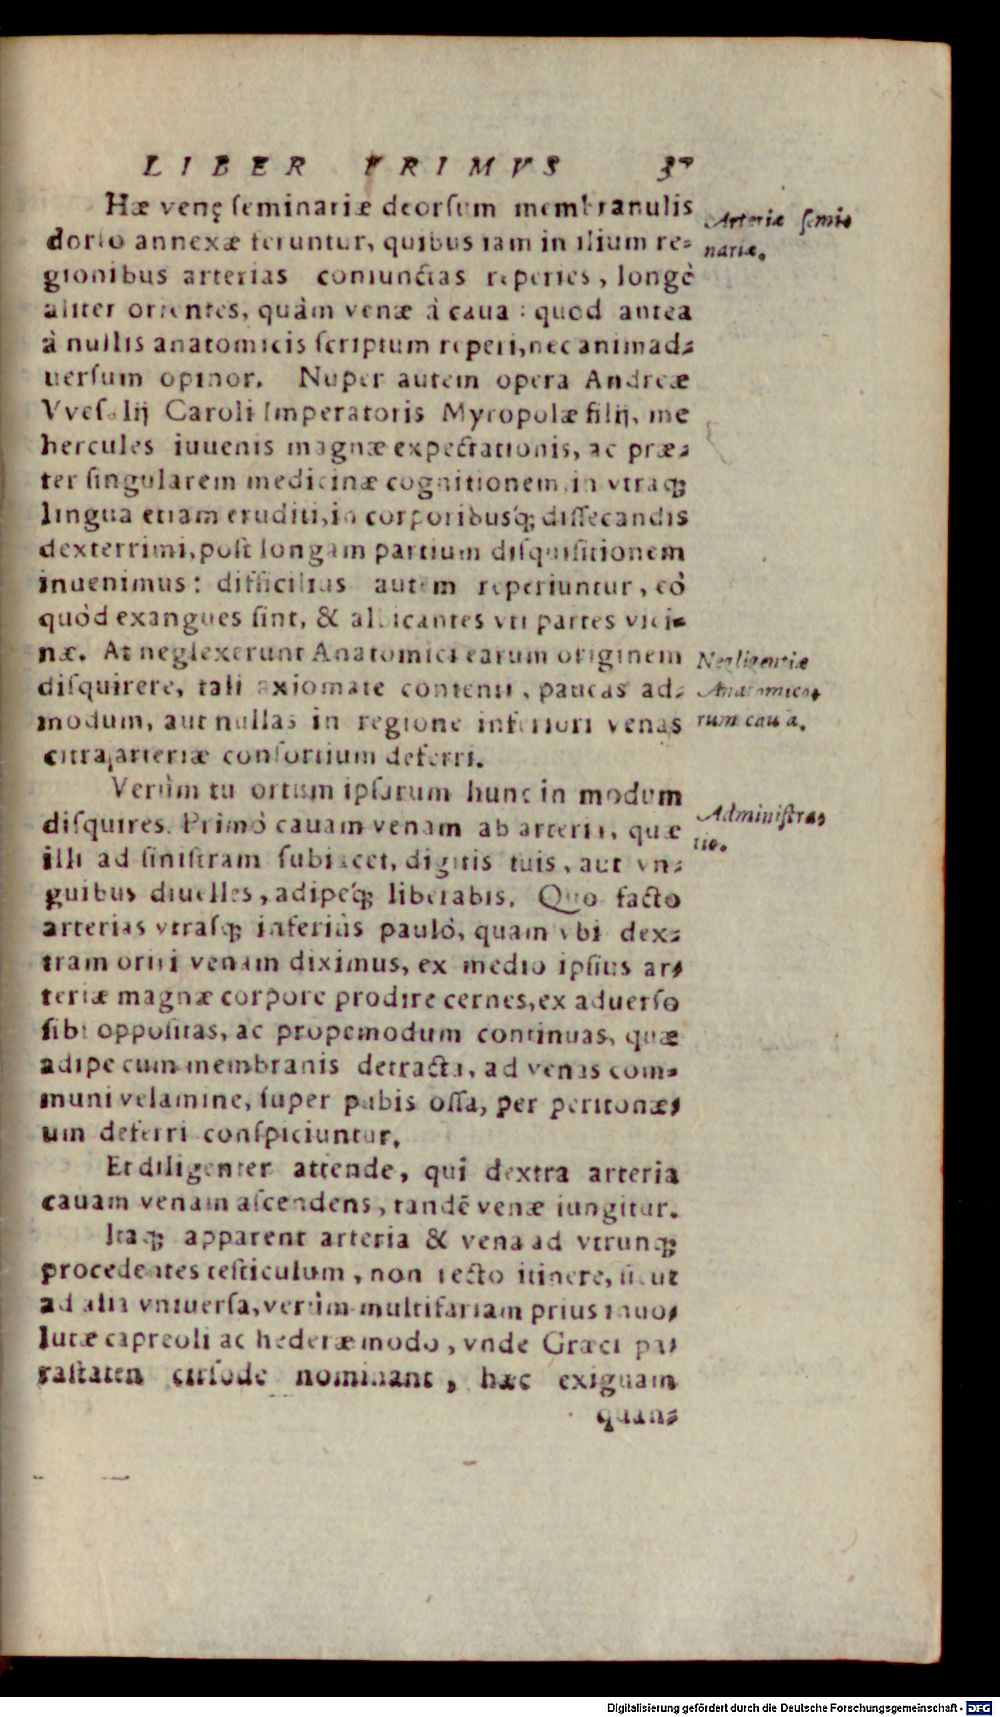 LIBER PRIMVS 37
Hæ venę ſeminariæ deorſum membranulis
dorſo annexæ feruntur, quibus iam in ilium re-
gionibus arterias coniunctas reperies, longè
aliter orientes, quàm venæ à caua: quod antea
à nullis anatomicis ſcriptum reperi, nec animad-
uerſum opinor. Nuper autem opera Andreæ
Vveſalij Caroli Imperatoris Myropolæ filij, me
hercules iuuenis magnæ expectationis, ac præ-
ter ſingularem medicinæ cognitionem, in vtraq;
lingua etiam eruditi, in corporibusq́; diſſecandis
dexterrimi, poſt longam partium diſquiſitionem
inuenimus: difficilius autem reperiuntur, eò
quòd exangues ſint, & albicantes vti partes vici-
næ. At neglexerunt Anatomici earum originem
diſquirere, tali axiomate contenti, paucas ad-
modum, aut nullas in regione inferiori venas
citra arteriæ conſortium deferri.
Verùm tu ortum ipſarum hunc in modum
diſquires. Primò cauam venam ab arteria, quæ
illi ad ſiniſtram ſubiacet, digitis tuis, aut vn-
guibus diuelles, adipeq́; liberabis. Quo facto
arterias vtraſq; inferiùs paulò, quam vbi dex-
tram oriri venam diximus, ex medio ipſius ar-
teriæ magnæ corpore prodire cernes, ex aduerſo
ſibi oppoſitas, ac propemodum continuas, quæ
adipe cum membranis detracta, ad venas com-
muni velamine, ſuper pubis oſſa, per peritonæ-
um deferri conſpiciuntur.
Et diligenter attende, qui dextra arteria
cauam venam aſcendens, tandē venæ iungitur.
Itaq; apparent arteria & vena ad vtrunq;
procedentes teſticulum, non recto itinere, ſicut
ad alia vniuerſa, verùm multifariam prius inuo-
lutæ capreoli ac hederæ modo, vnde Græci pa-
raſtaten cirſode nominant, hæc exiguam
quan-
Arteriæ ſemi-
nariæ.
Negligentiæ
Anatomico-
rum cauſa.
Adminiſtra-
tio.
Digitalisierung gefördert durch die Deutsche Forschungsgemeinschaft - DFG